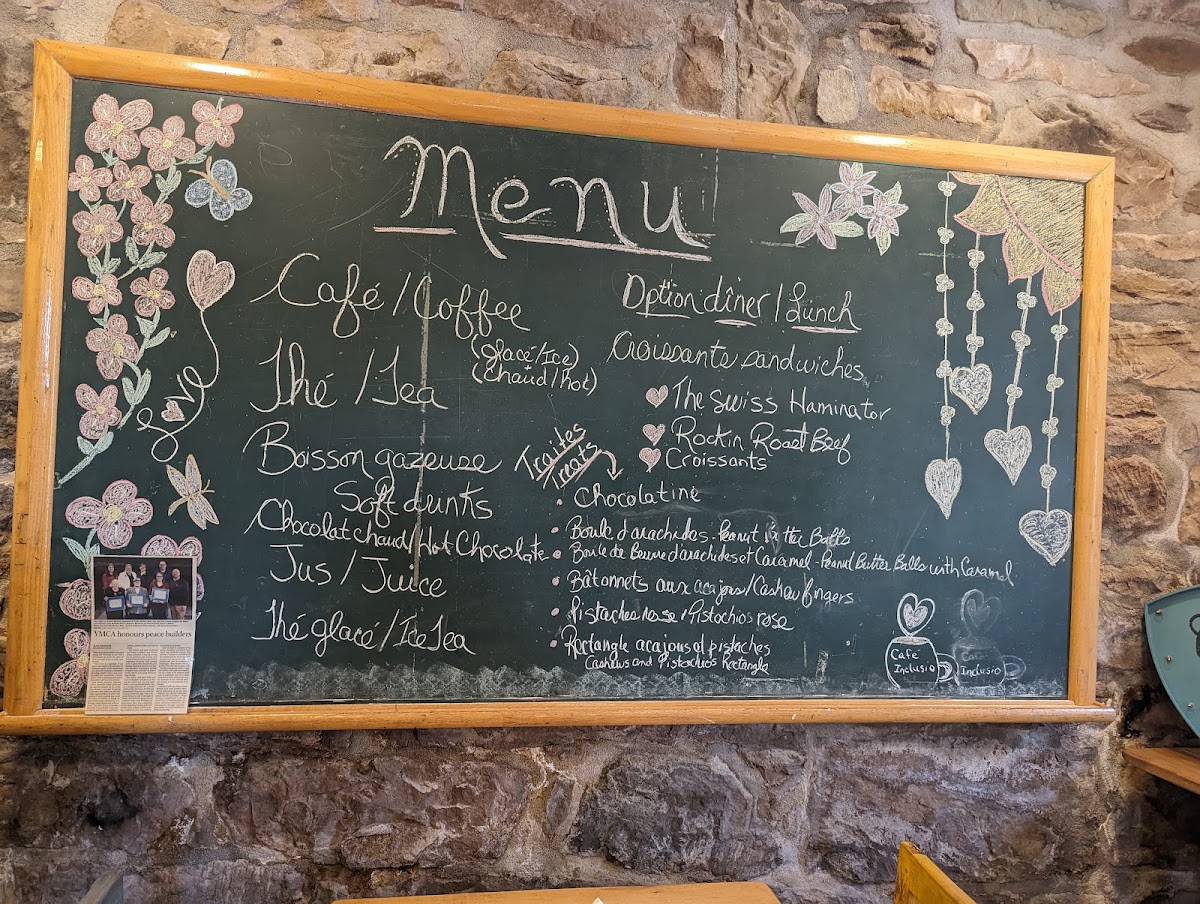 Menu
Love
Café / Coffee
(Glacé/Ice)
(Chaud/hot)
Thé / Tea
Boisson gazeuse
Soft drinks
Chocolat chaud/Hot Chocolate
Jus / Juice
Thé glacé / Ice Tea
Option dîner / Lunch
Croissante sandwiches
The Swiss Haminator
Rockin Roast Beef
Croissants
Traites
Treats
Chocolatine
Boule d'arachides - Peanut Butter Balls
Boule de Beurre d'arachides et Caramel - Peanut Butter Balls with Caramel
Bâtonnets aux acajous / Cashew fingers
Pistaches rose / Pistachios rose
Rectangle acajous et pistaches
Cashews and Pistachios Rectangle
Café
Inclusio
Café
Inclusio
YMCA honours peace builders